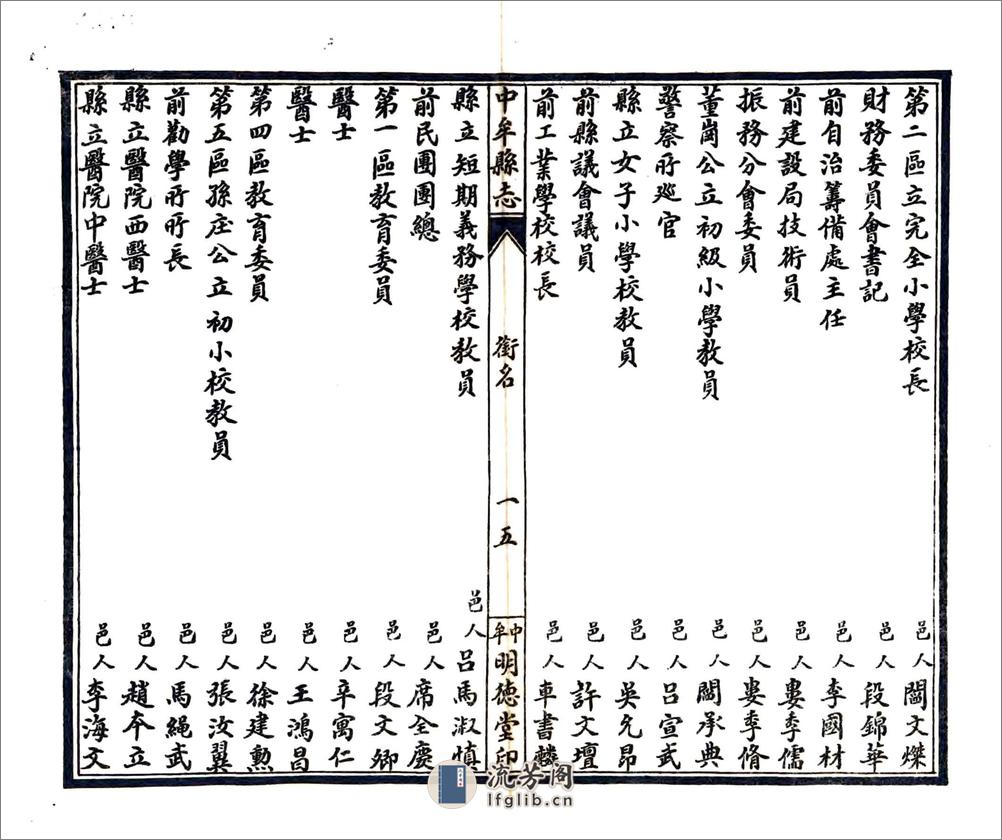 第二區立完全小學校長 邑人 閻文燦
財務委員會書記 邑人 段錦華
前自治籌備處主任 邑人 李國材
前建設局技術員 邑人 婁季儒
振務分會委員 邑人 婁季脩
董崗公立初級小學教員 邑人 閻承典
警察所巡官 邑人 呂宣武
縣立女子小學校教員 邑人 吳允昂
前縣議會議員 邑人 許文壇
前工業學校校長 邑人 車書麟
中牟縣志 銜名 一五 中牟明德堂印
縣立短期義務學校教員 邑人 呂馬淑慎
前民團團總 邑人 席全慶
第一區教育委員 邑人 段文卿
醫士 邑人 辛寓仁
醫士 邑人 王鴻昌
第四區教育委員 邑人 徐建勲
第五區孫庄公立初小校教員 邑人 張汝翼
前勸學所所長 邑人 馬繩武
縣立醫院西醫士 邑人 趙本立
縣立醫院中醫士 邑人 李海文
流芳阁
lfglib.cn